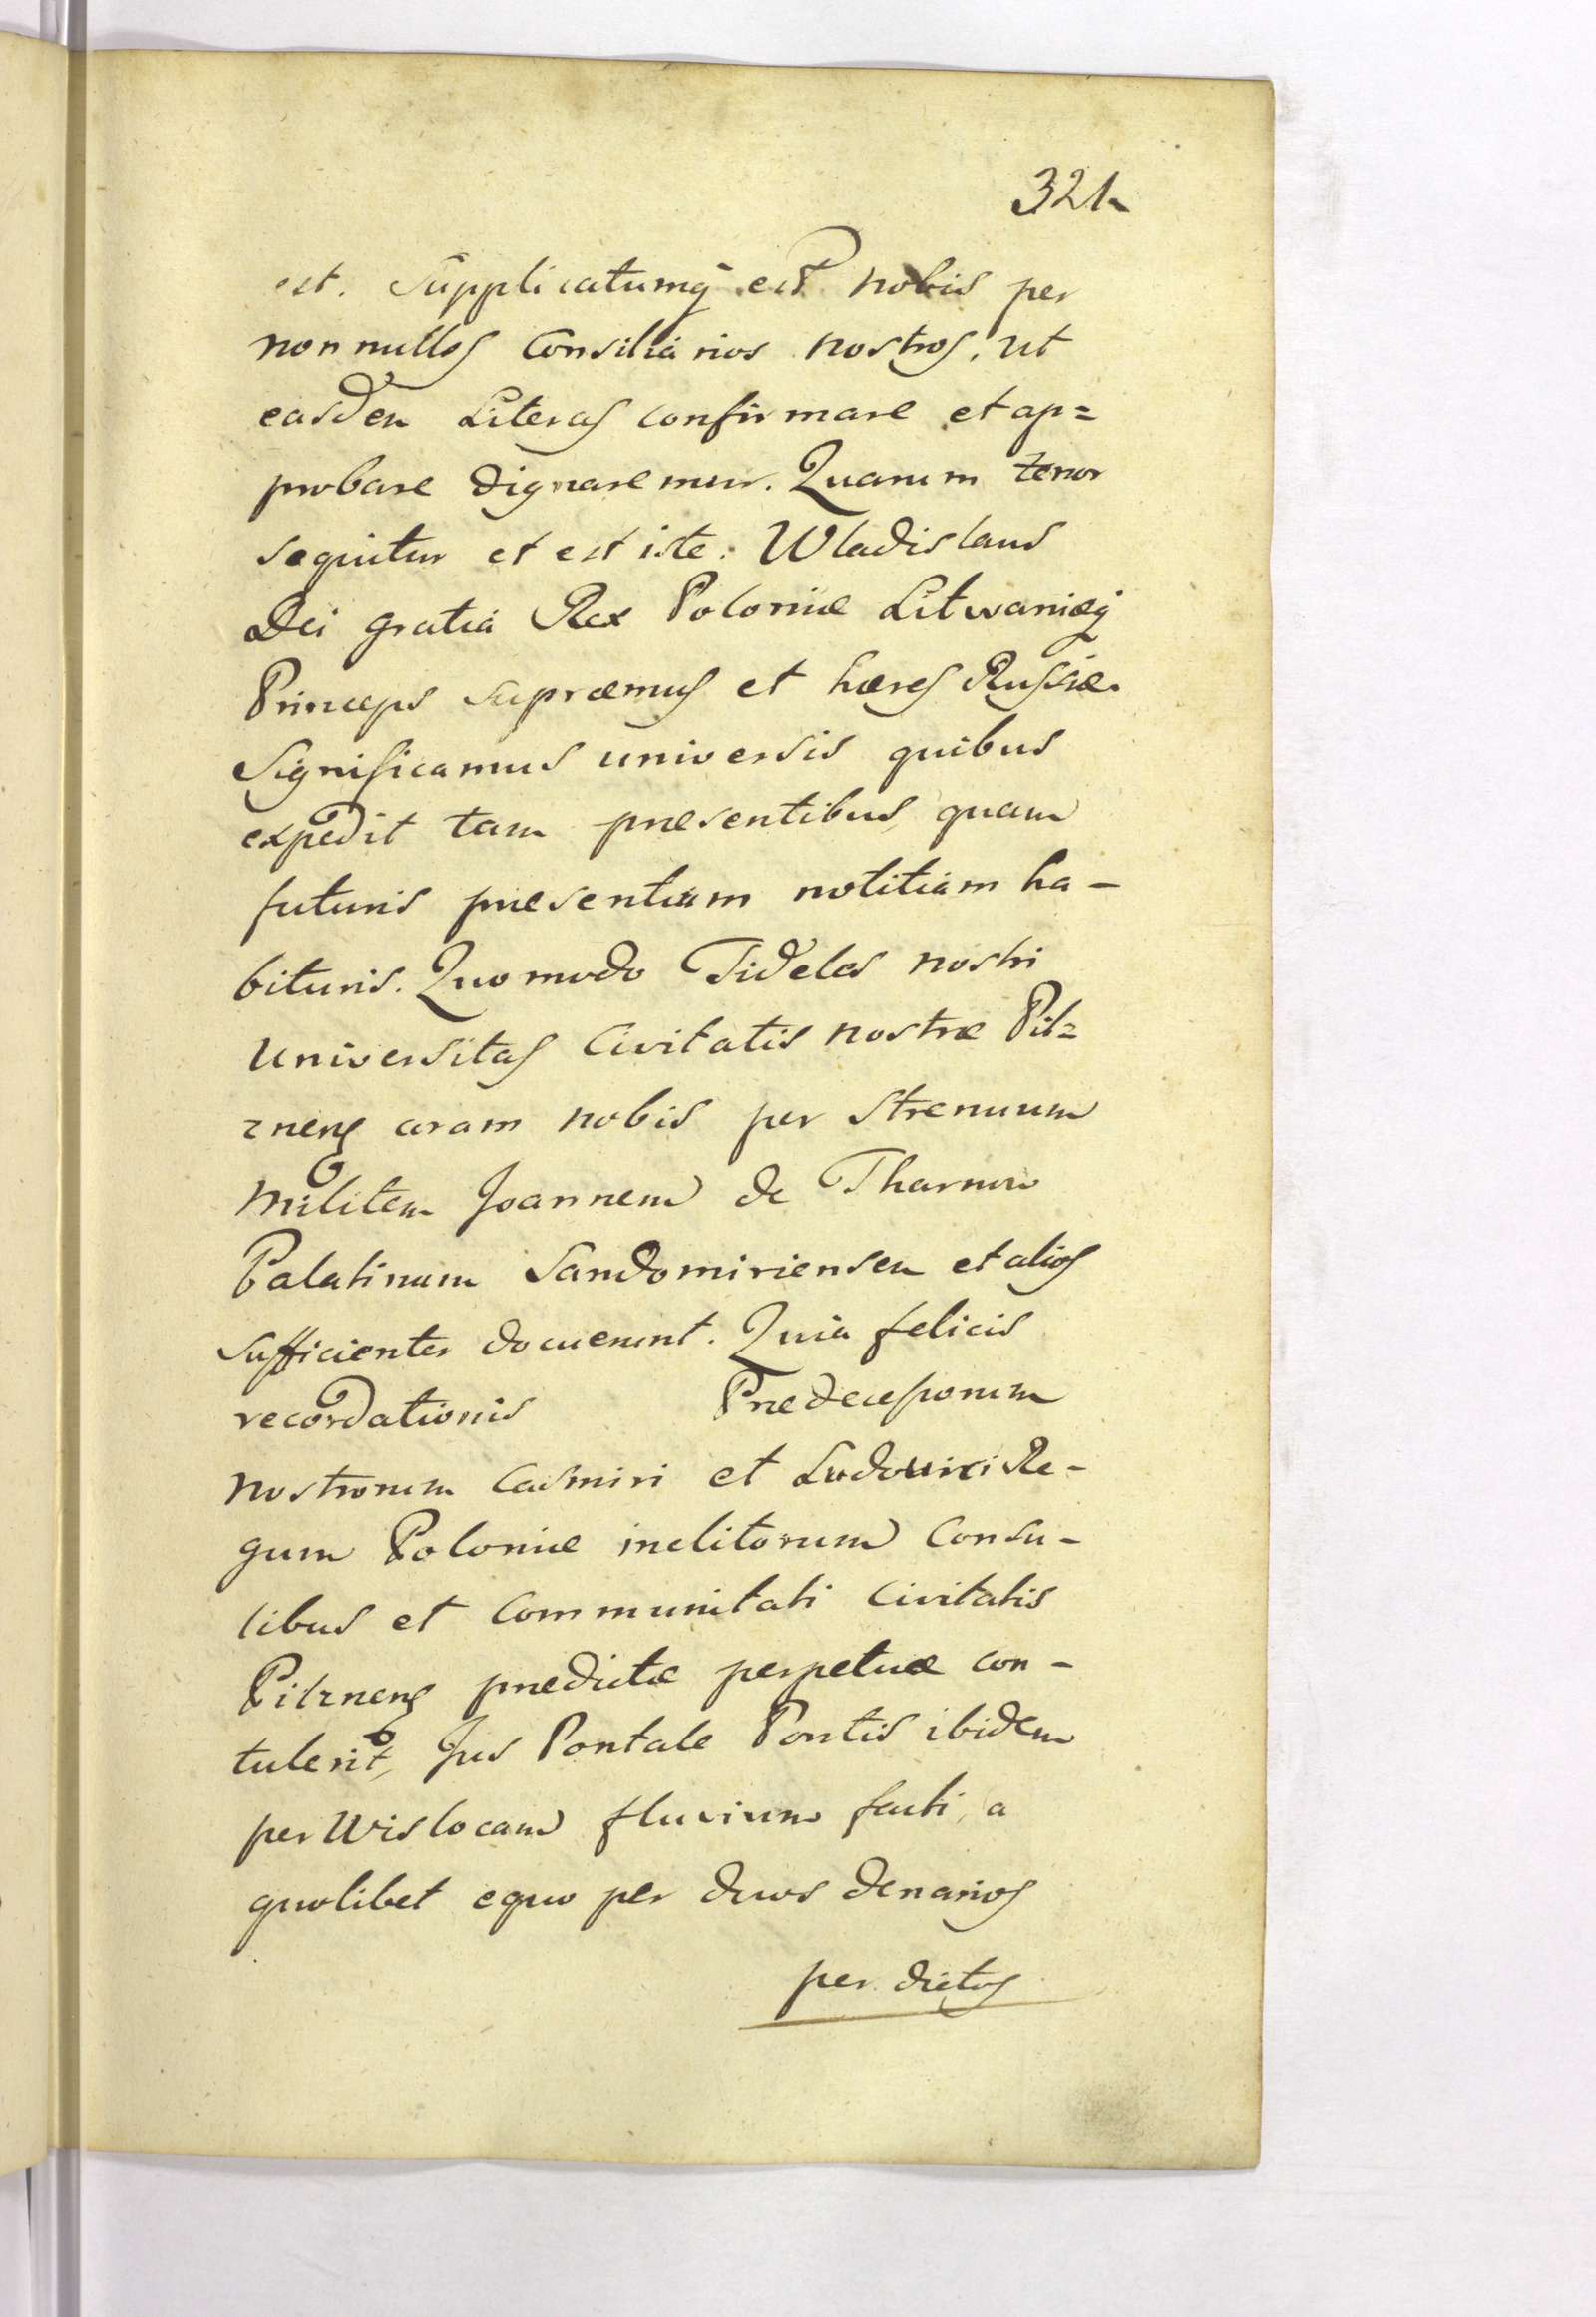 321.
est. Supplicatumq est nobis per
non nullos Consiliarios nostros, ut
easdem Literas confirmare et ap=
probare dignaremur. Quarum tenor
sequitur et est iste: Wladislaus
Dei gratia Rex Poloniæ Litwaniæq
Princeps supræmus et hæres Russiæ.
Significamus universis quibus
expedit tam præsentibus, quam
futuris præsentium notitiam ha-
bituris. Quomodo Fideles nostri
Universitas Civitatis nostræ Pil=
znens coram nobis per Strenuum
Militem Joannem de Tharnow
Palatinum Sandomiriensem et alios
sufficienter docuerunt. Quia felicis
recordationis Prædecessorum
nostrorum Casmiri et Ludovici Re-
gum Poloniæ inclitorum Consu-
libus et Communitati Civitatis
Pilznens prædictæ perpetuæ con-
tulerit, Jus Pontale Pontis ibidem
per Wislocam fluvium facti, a
quolibet equo per duos denarios
per dictos